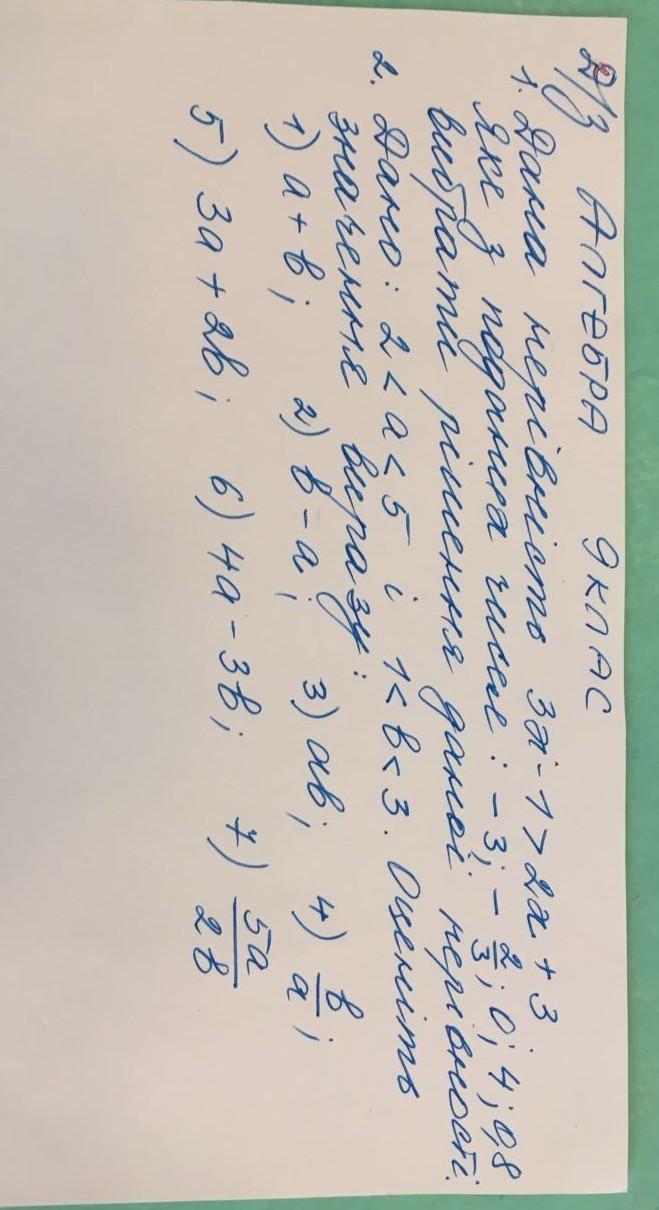 Д/З АЛГЕБРА 9 КЛАС
1. Дана нерівність 3x - 1 > 2x + 3
Яке з поданих чисел: -3; -2/3; 0; 4; 0,8
вибрати рішення даної нерівності.
2. Дано: 2 < a < 5 і 1 < b < 3. Оцініть
значення виразу:
1) a + b; 2) b - a; 3) ab; 4) b/a;
5) 3a + 2b; 6) 4a - 3b; 7) 5a/2b